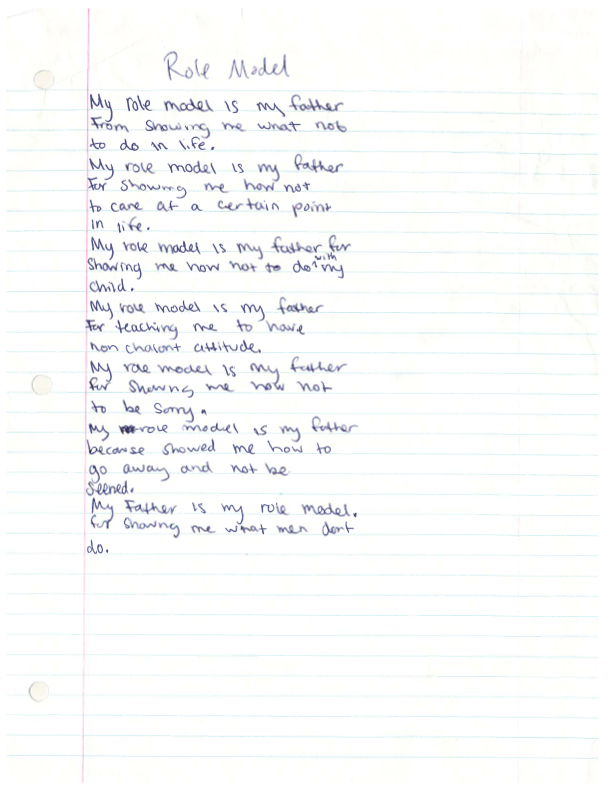 Role Model
My role model is my father
From showing me what not
to do in life.
My role model is my father
For showing me how not
to care at a certain point
in life.
My role model is my father for
showing me how not to do ^with my
child.
My role model is my father
For teaching me to have
non chalont attitude.
My role model is my father
for showing me how not
to be sorry.
My role model is my father
because showed me how to
go away and not be
seened.
My Father is my role model.
for showing me what men dont
do.